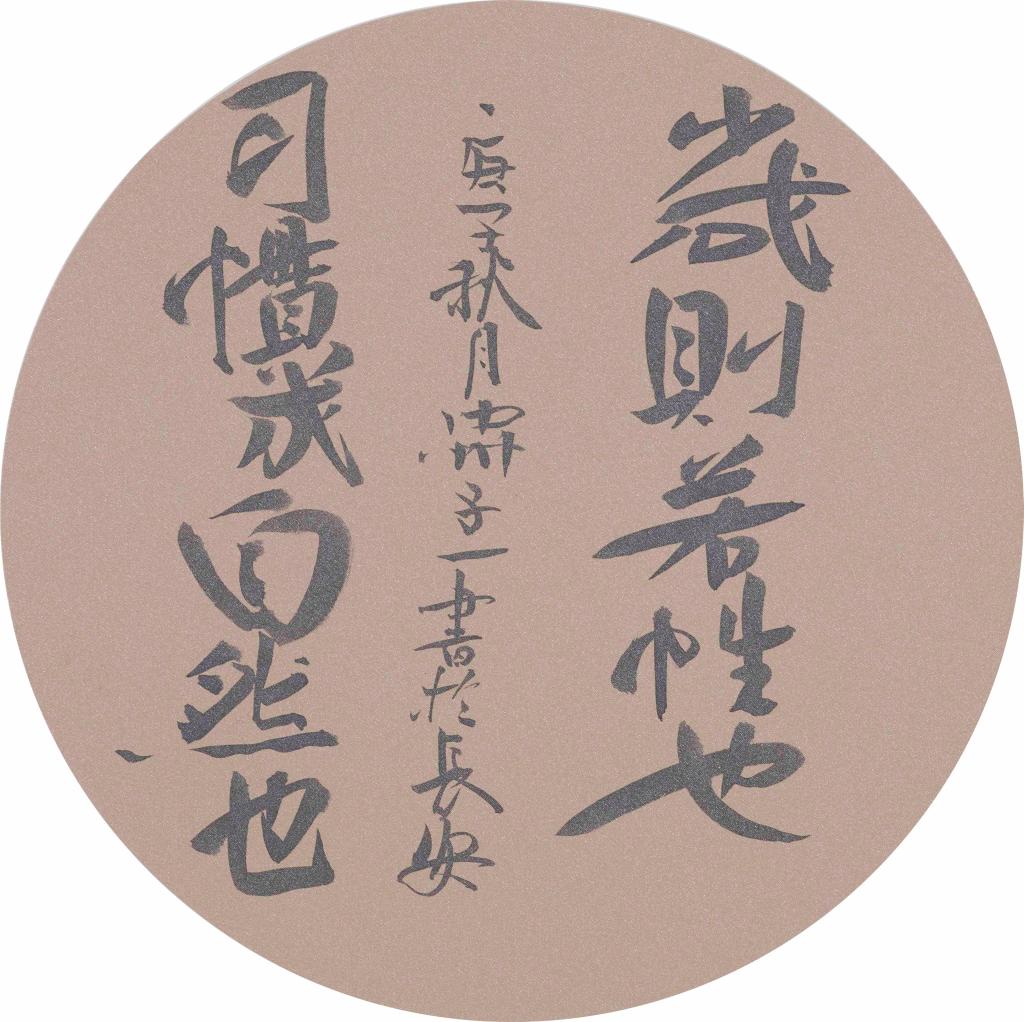 少成則若性也
习慣成自然也
庚子秋月子一書於長安